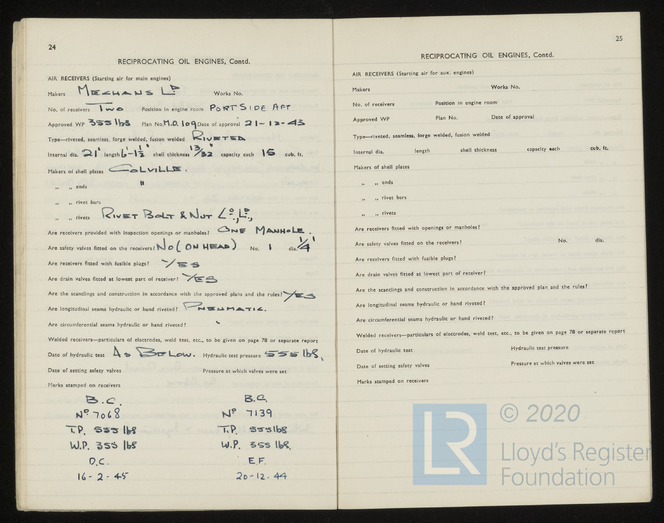 24
RECIPROCATING OIL ENGINES, Contd.
AIR RECEIVERS (Starting air for main engines)
Makers MECHANS LD Works No.
No. of receivers TWO Position in engine room PORT SIDE AFT
Approved WP 355 lbs Plan No. M.O. 109 Date of approval 21-12-43
Type—riveted, seamless, forge welded, fusion welded RIVETED
Internal dia. 21" length 6'-1½" shell thickness 13/32" capacity each 15 cub. ft.
Makers of shell plates COLVILLE.
„ „ ends "
„ „ rivet bars
„ „ rivets RIVET BOLT & NUT CO. LD.,
Are receivers provided with inspection openings or manholes? ONE MANHOLE.
Are safety valves fitted on the receivers? NO (ON HEAD) No. 1 dia. 1/4"
Are receivers fitted with fusible plugs? YES
Are drain valves fitted at lowest part of receiver? YES
Are the scantlings and construction in accordance with the approved plans and the rules? YES
Are longitudinal seams hydraulic or hand riveted? PNEUMATIC.
Are circumferential seams hydraulic or hand riveted? "
Welded receivers—particulars of electrodes, weld test, etc., to be given on page 78 or separate report
Date of hydraulic test AS BELOW. Hydraulic test pressure 555 lbs.
Date of setting safety valves Pressure at which valves were set
Marks stamped on receivers
B.C. B.C.
No 7068 No 7139
T.P. 555 lbs T.P. 555 lbs
W.P. 355 lbs W.P. 355 lbs.
O.C. E.F.
16-2-45 20-12-44
25
RECIPROCATING OIL ENGINES, Contd.
AIR RECEIVERS (Starting air for aux. engines)
Makers Works No.
No. of receivers Position in engine room
Approved WP Plan No. Date of approval
Type—riveted, seamless, forge welded, fusion welded
Internal dia. length shell thickness capacity each cub. ft.
Makers of shell plates
„ „ ends
„ „ rivet bars
„ „ rivets
Are receivers fitted with openings or manholes?
Are safety valves fitted on the receivers? No. dia.
Are receivers fitted with fusible plugs?
Are drain valves fitted at lowest part of receiver?
Are the scantlings and construction in accordance with the approved plan and the rules?
Are longitudinal seams hydraulic or hand riveted?
Are circumferential seams hydraulic or hand riveted?
Welded receivers—particulars of electrodes, weld test, etc., to be given on page 78 or separate report
Date of hydraulic test Hydraulic test pressure
Date of setting safety valves Pressure at which valves were set
Marks stamped on receivers
LR © 2020
Lloyd's Register
Foundation